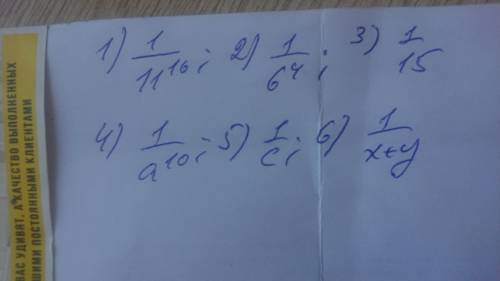 1) 1/11^16; 2) 1/6^4; 3) 1/15
4) 1/a^10; 5) 1/c; 6) 1/x+y
ВАС УДИВЯТ, А КАЧЕСТВО ВЫПОЛНЕННЫХ
ШИМИ ПОСТОЯННЫМИ КЛИЕНТАМИ